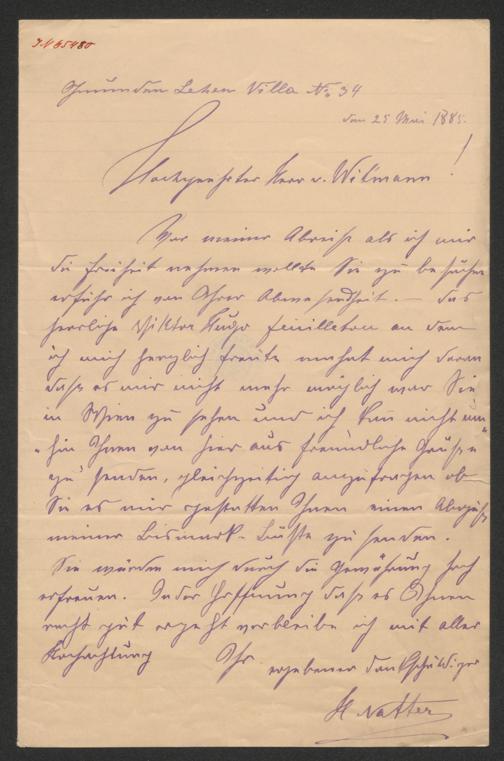 I.N 65480
Gmunden Lehen Villa No 34
den 25 Mai 1885.
Hochgeehrter Herr v. Wilmann!
Vor meiner Abreise als ich mir
die Freiheit nehmen wollte Sie zu besuchen
erfuhr ich von Ihrer Abwesendheit. — das
herrliche Viktor Hugo feuilleton an dem
ich mich herzlich freute mahnt mich daran
dass es mir nicht mehr möglich war Sie
in Wien zu sehen und ich kan nicht um„
„hin Ihnen von hier aus freundliche Grüße
zu senden, gleichzeitig anzufragen ob
Sie es mir gestatten Ihnen einen Abguß
meiner Bismark-Büste zu senden.
Sie würden mich durch die Gewährung hoch
erfreuen. In der Hoffnung dass es Ihnen
recht gut ergeht verbleibe ich mit aller
Hochachtung Ihr ergebener dankschuldiger
H Natter